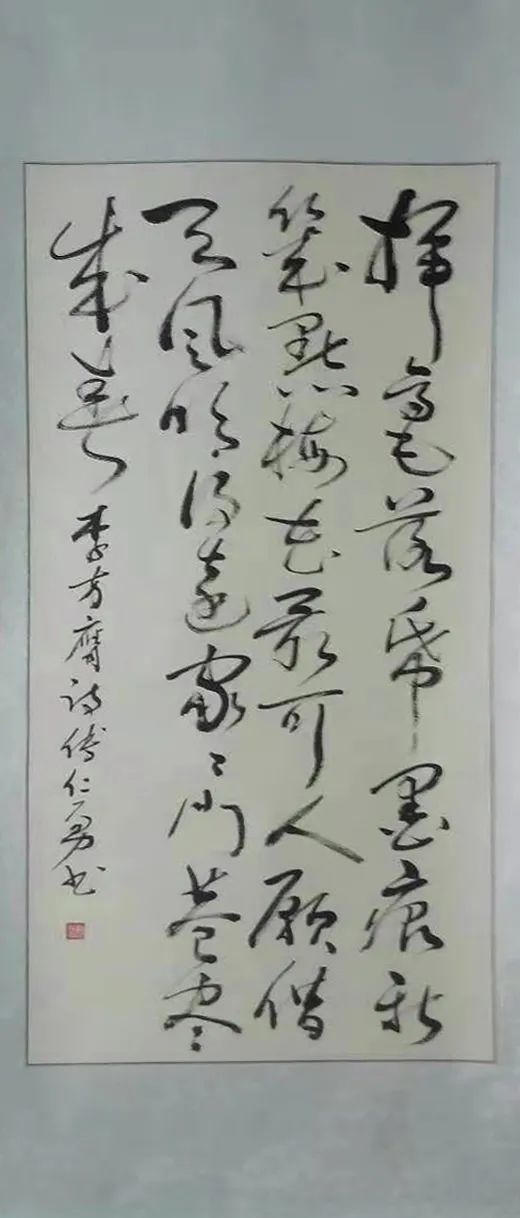 揮毫落帋墨痕新
幾點梅花最可人願借
天風吹得遠家々門巷盡
成春
李方膺詩傅仁勇書